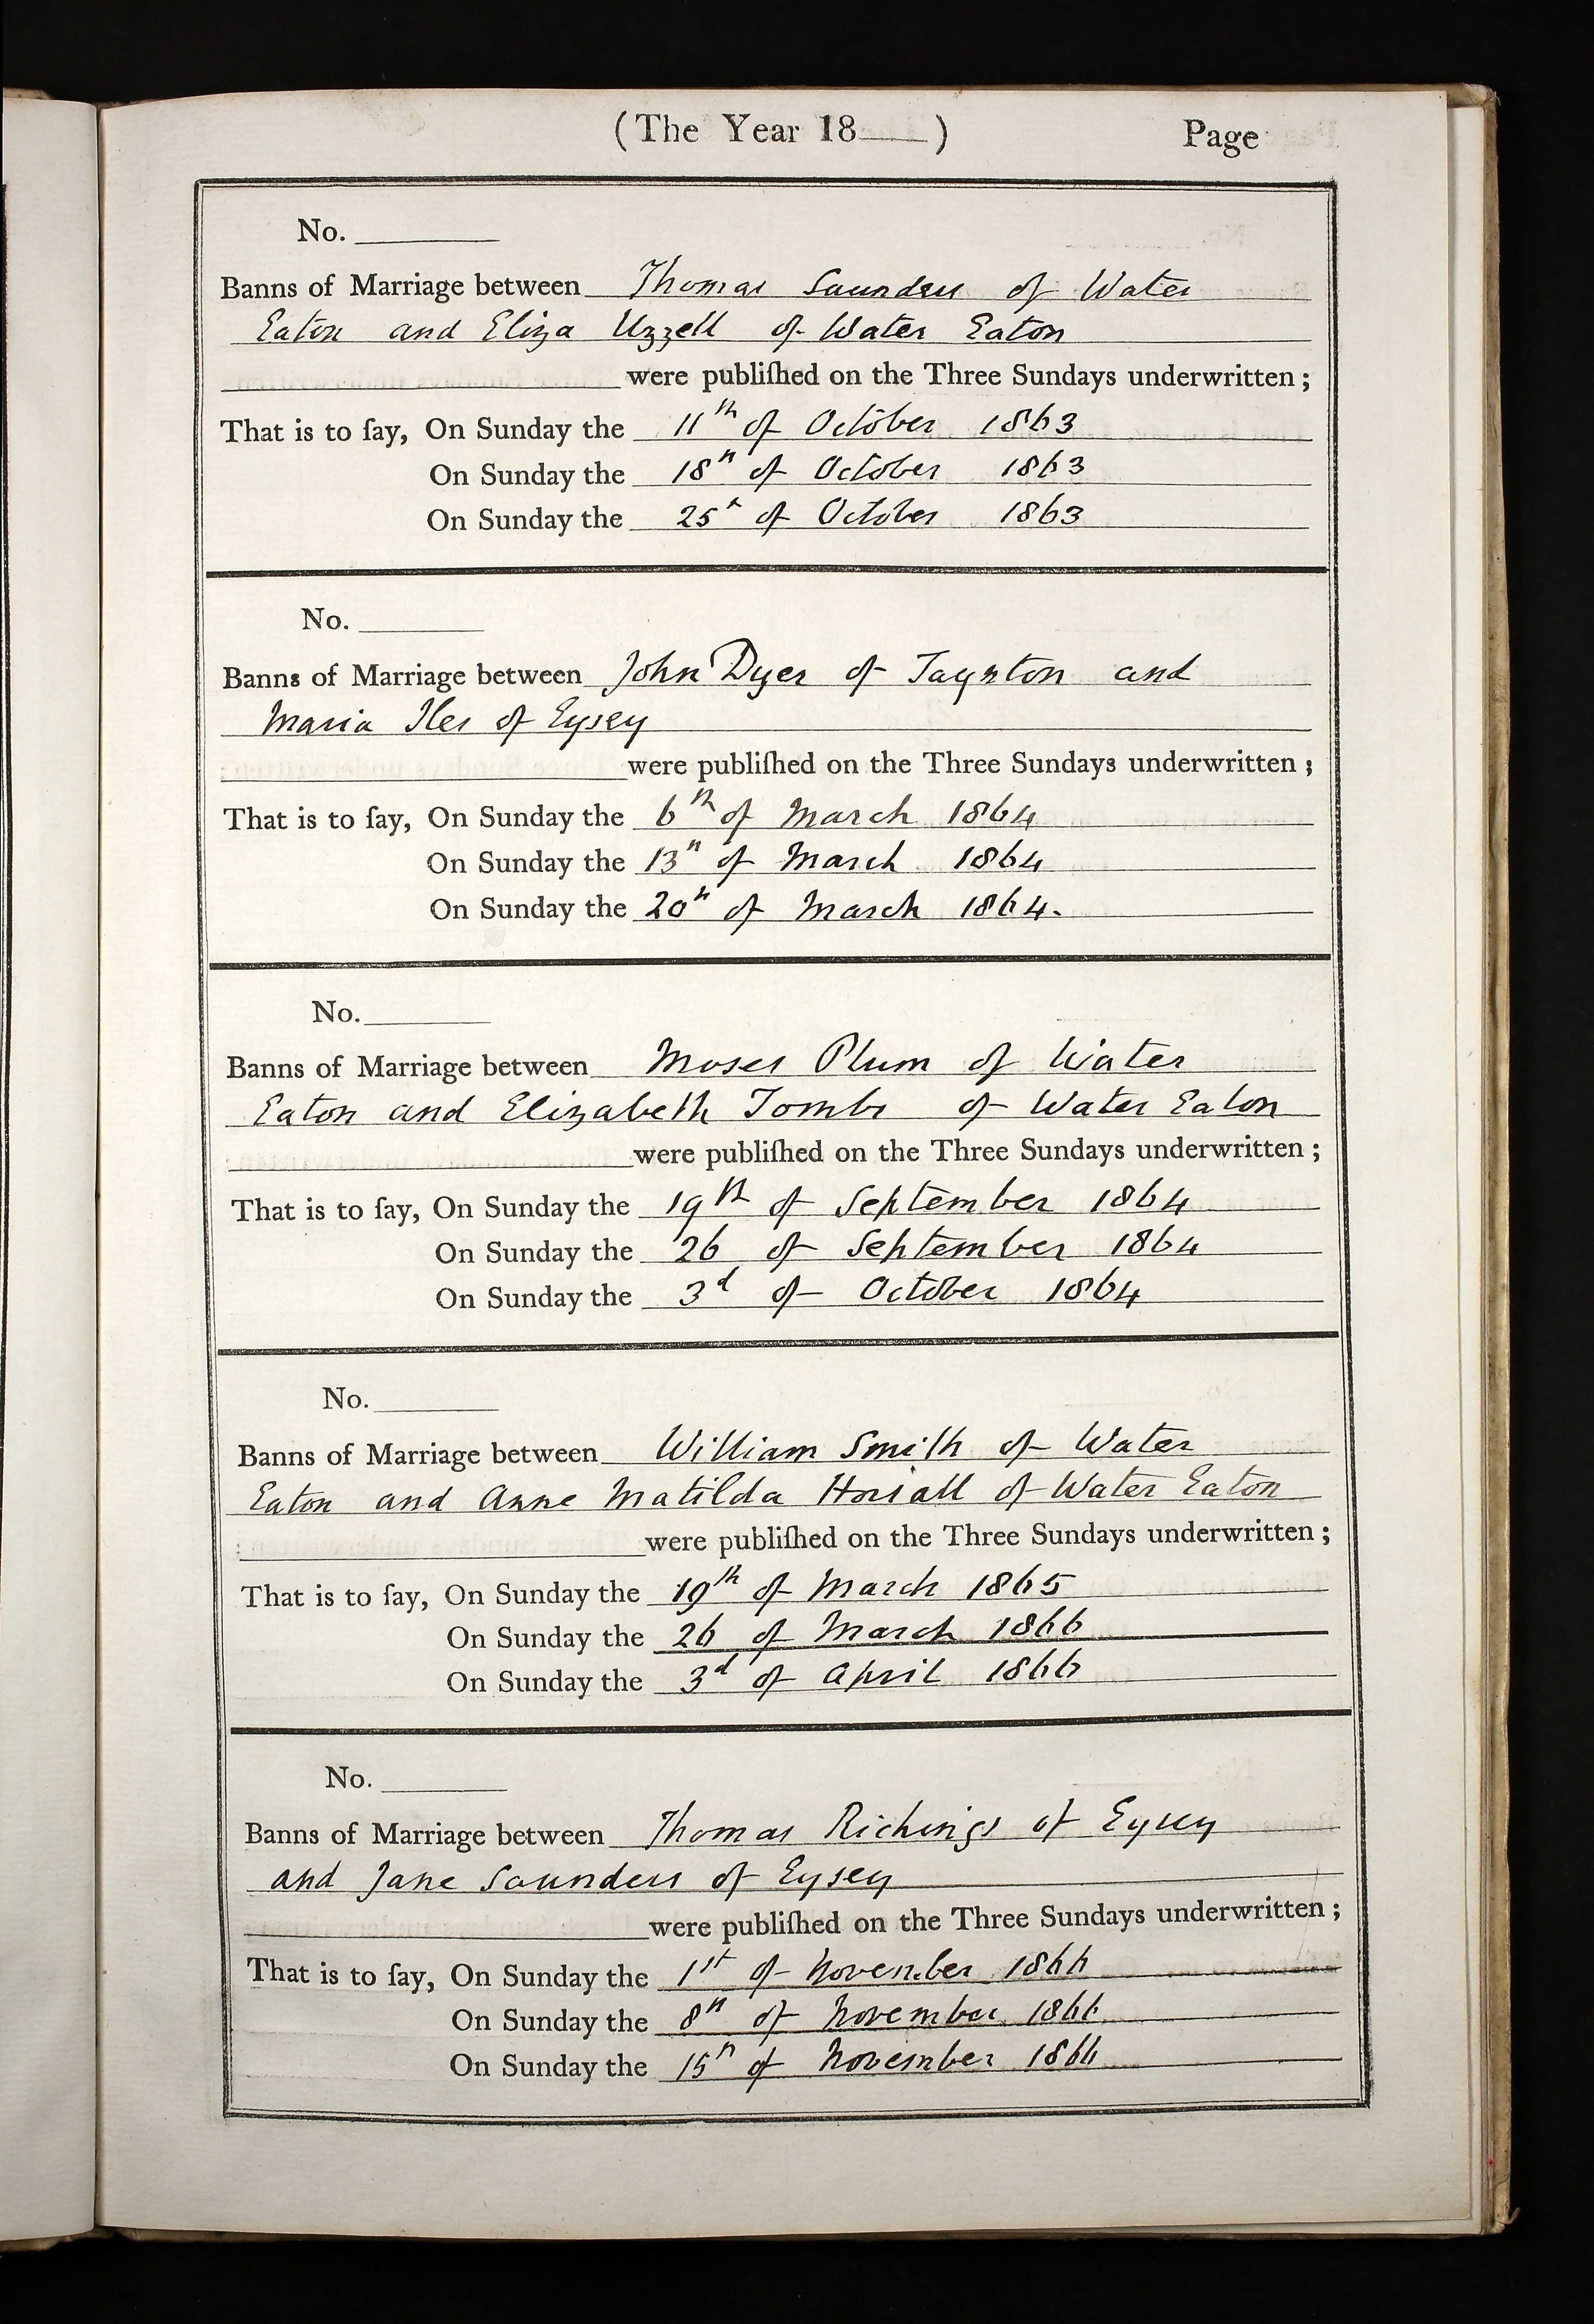 (The Year 18___) Page
No. ______
Banns of Marriage between Thomas Saunders of Water
Eaton and Eliza Uzzell of Water Eaton
were publiſhed on the Three Sundays underwritten;
That is to ſay, On Sunday the 11th of October 1863
On Sunday the 18th of October 1863
On Sunday the 25th of October 1863
No. ______
Banns of Marriage between John Dyer of Taynton and
Maria Iles of Eysey
were publiſhed on the Three Sundays underwritten;
That is to ſay, On Sunday the 6th of March 1864
On Sunday the 13th of March 1864
On Sunday the 20th of March 1864.
No. ______
Banns of Marriage between Moses Plum of Water
Eaton and Elizabeth Tombs of Water Eaton
were publiſhed on the Three Sundays underwritten;
That is to ſay, On Sunday the 19th of September 1864
On Sunday the 26 of September 1864
On Sunday the 3d of October 1864
No. ______
Banns of Marriage between William Smith of Water
Eaton and Anne Matilda Horsall of Water Eaton
were publiſhed on the Three Sundays underwritten;
That is to ſay, On Sunday the 19th of March 1865
On Sunday the 26 of March 1866
On Sunday the 3d of April 1866
No. ______
Banns of Marriage between Thomas Richings of Eysey
and Jane Saunders of Eysey
were publiſhed on the Three Sundays underwritten;
That is to ſay, On Sunday the 1st of November 1866
On Sunday the 8th of November 1866
On Sunday the 15th of November 1866